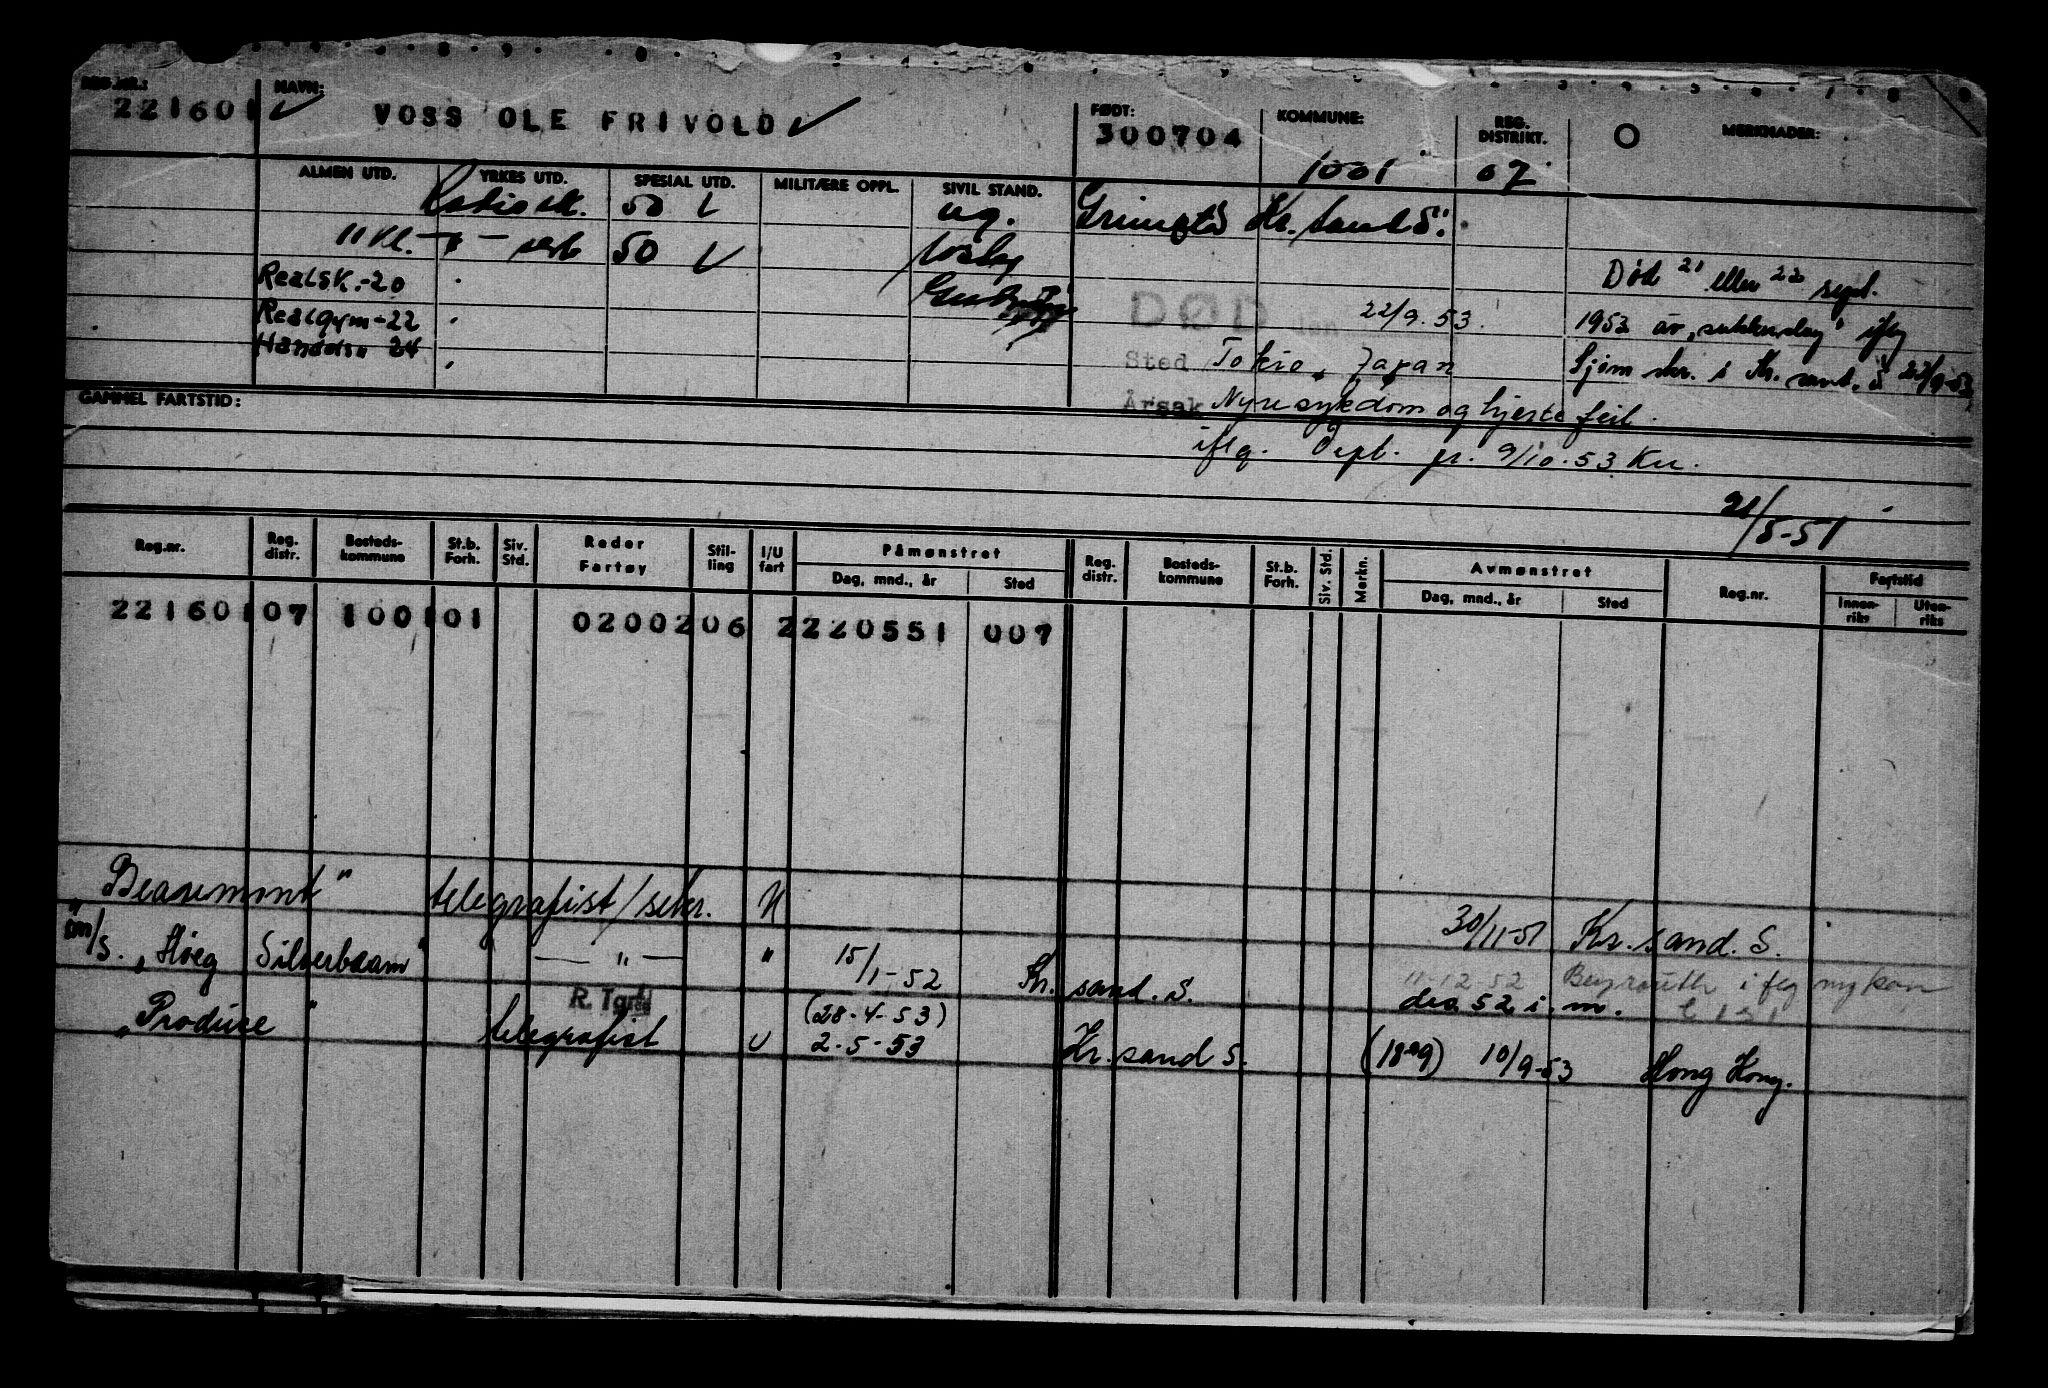 REG.NR.: NAVN: FØDT: KOMMUNE: REG. DISTRIKT. MERKNADER:
221601 VOSS OLE FRIVOLD 300704 1001 07
ALMEN UTD. YRKES UTD. SPESIAL UTD. MILITÆRE OPPL. SIVIL STAND.
50 ug. Kr. sand S.
11 kl. 50
Realsk.-20
Død 21 eller 22 sept.
Realgym-22
DØD den 22/9.53.
1953 av
24
Sted Tokio, Japan
Sjøm skr. i Kr. sand. S 23/9-53
Årsak Nyresykdom og hjertefeil.
GAMMEL FARTSTID:
iflg. Dept. pr. 9/10.53 Kr.
21/5-51
Reg.nr. Reg. distr. Bosteds-kommune St.b. Forh. Siv. Std. Reder Fartøy Stil-ling I/U fart Påmønstret Dag, mnd., år Sted Reg. distr. Bosteds-kommune St.b. Forh. Siv. Std. Merkn. Avmønstret Dag, mnd., år Sted Reg.nr. Fartstid Innen-riks Uten-riks
221601 07 1001 01 02002 06 2 220551 007
telegrafist/sekr. U 30/11-51 Kr. sand. S.
m/s. „Høeg Silverbeam" — " — " 15/1-52 Kr. sand. S. 11-12-52 Beyrouth
des. 52 i. m.
R. Tgrf.
(28.4-53)
„Produce" telegrafist U 2.5-53 Kr. sand S. 10/9-53 Hong Kong.